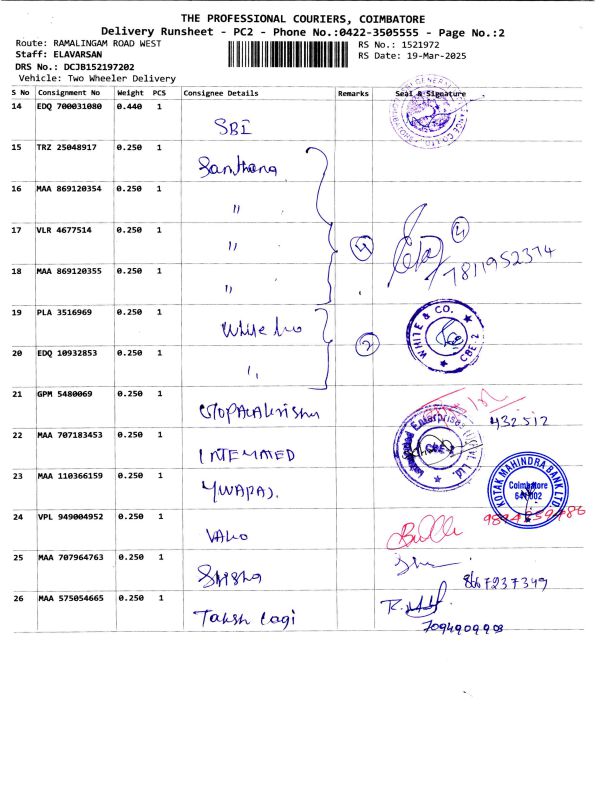 THE PROFESSIONAL COURIERS, COIMBATORE
Delivery Runsheet - PC2 - Phone No.:0422-3505555 - Page No.:2
Route: RAMALINGAM ROAD WEST
RS No.: 1521972
Staff: ELAVARSAN
RS Date: 19-Mar-2025
DRS No.: DCJB152197202
Vehicle: Two Wheeler Delivery
S No Consignment No Weight PCS Consignee Details Remarks Seal & Signature
14 EDQ 700031080 0.440 1 SBI
15 TRZ 25048917 0.250 1 Santhana
16 MAA 869120354 0.250 1 "
17 VLR 4677514 0.250 1 " 4 4
7811952374
18 MAA 869120355 0.250 1 "
19 PLA 3516969 0.250 1 White &co
WHITE & CO. CBE-2
20 EDQ 10932853 0.250 1 " 2
21 GPM 5480069 0.250 1 Gopalakrishn
432512
22 MAA 707183453 0.250 1 INTERMMED
Enterprises Ltd.
CBE
23 MAA 110366159 0.250 1
KOTAK MAHINDRA BANK LTD
Coimbatore
641 002
24 VPL 949004952 0.250 1
25 MAA 707964763 0.250 1
8667237349
26 MAA 575054665 0.250 1 Taksh Logi
7094909903